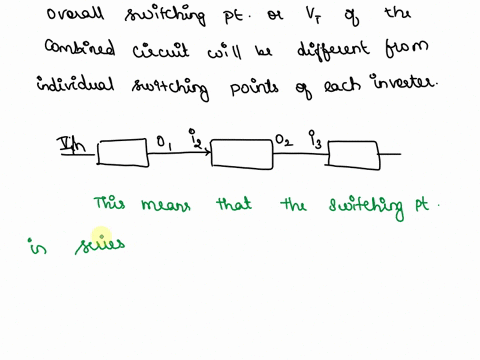 overall switching pt. or VT of the
combined circuit will be different from
individual switching points of each inverter.
Vin O1 i2 O2 i3
This means that the switching pt.
in series